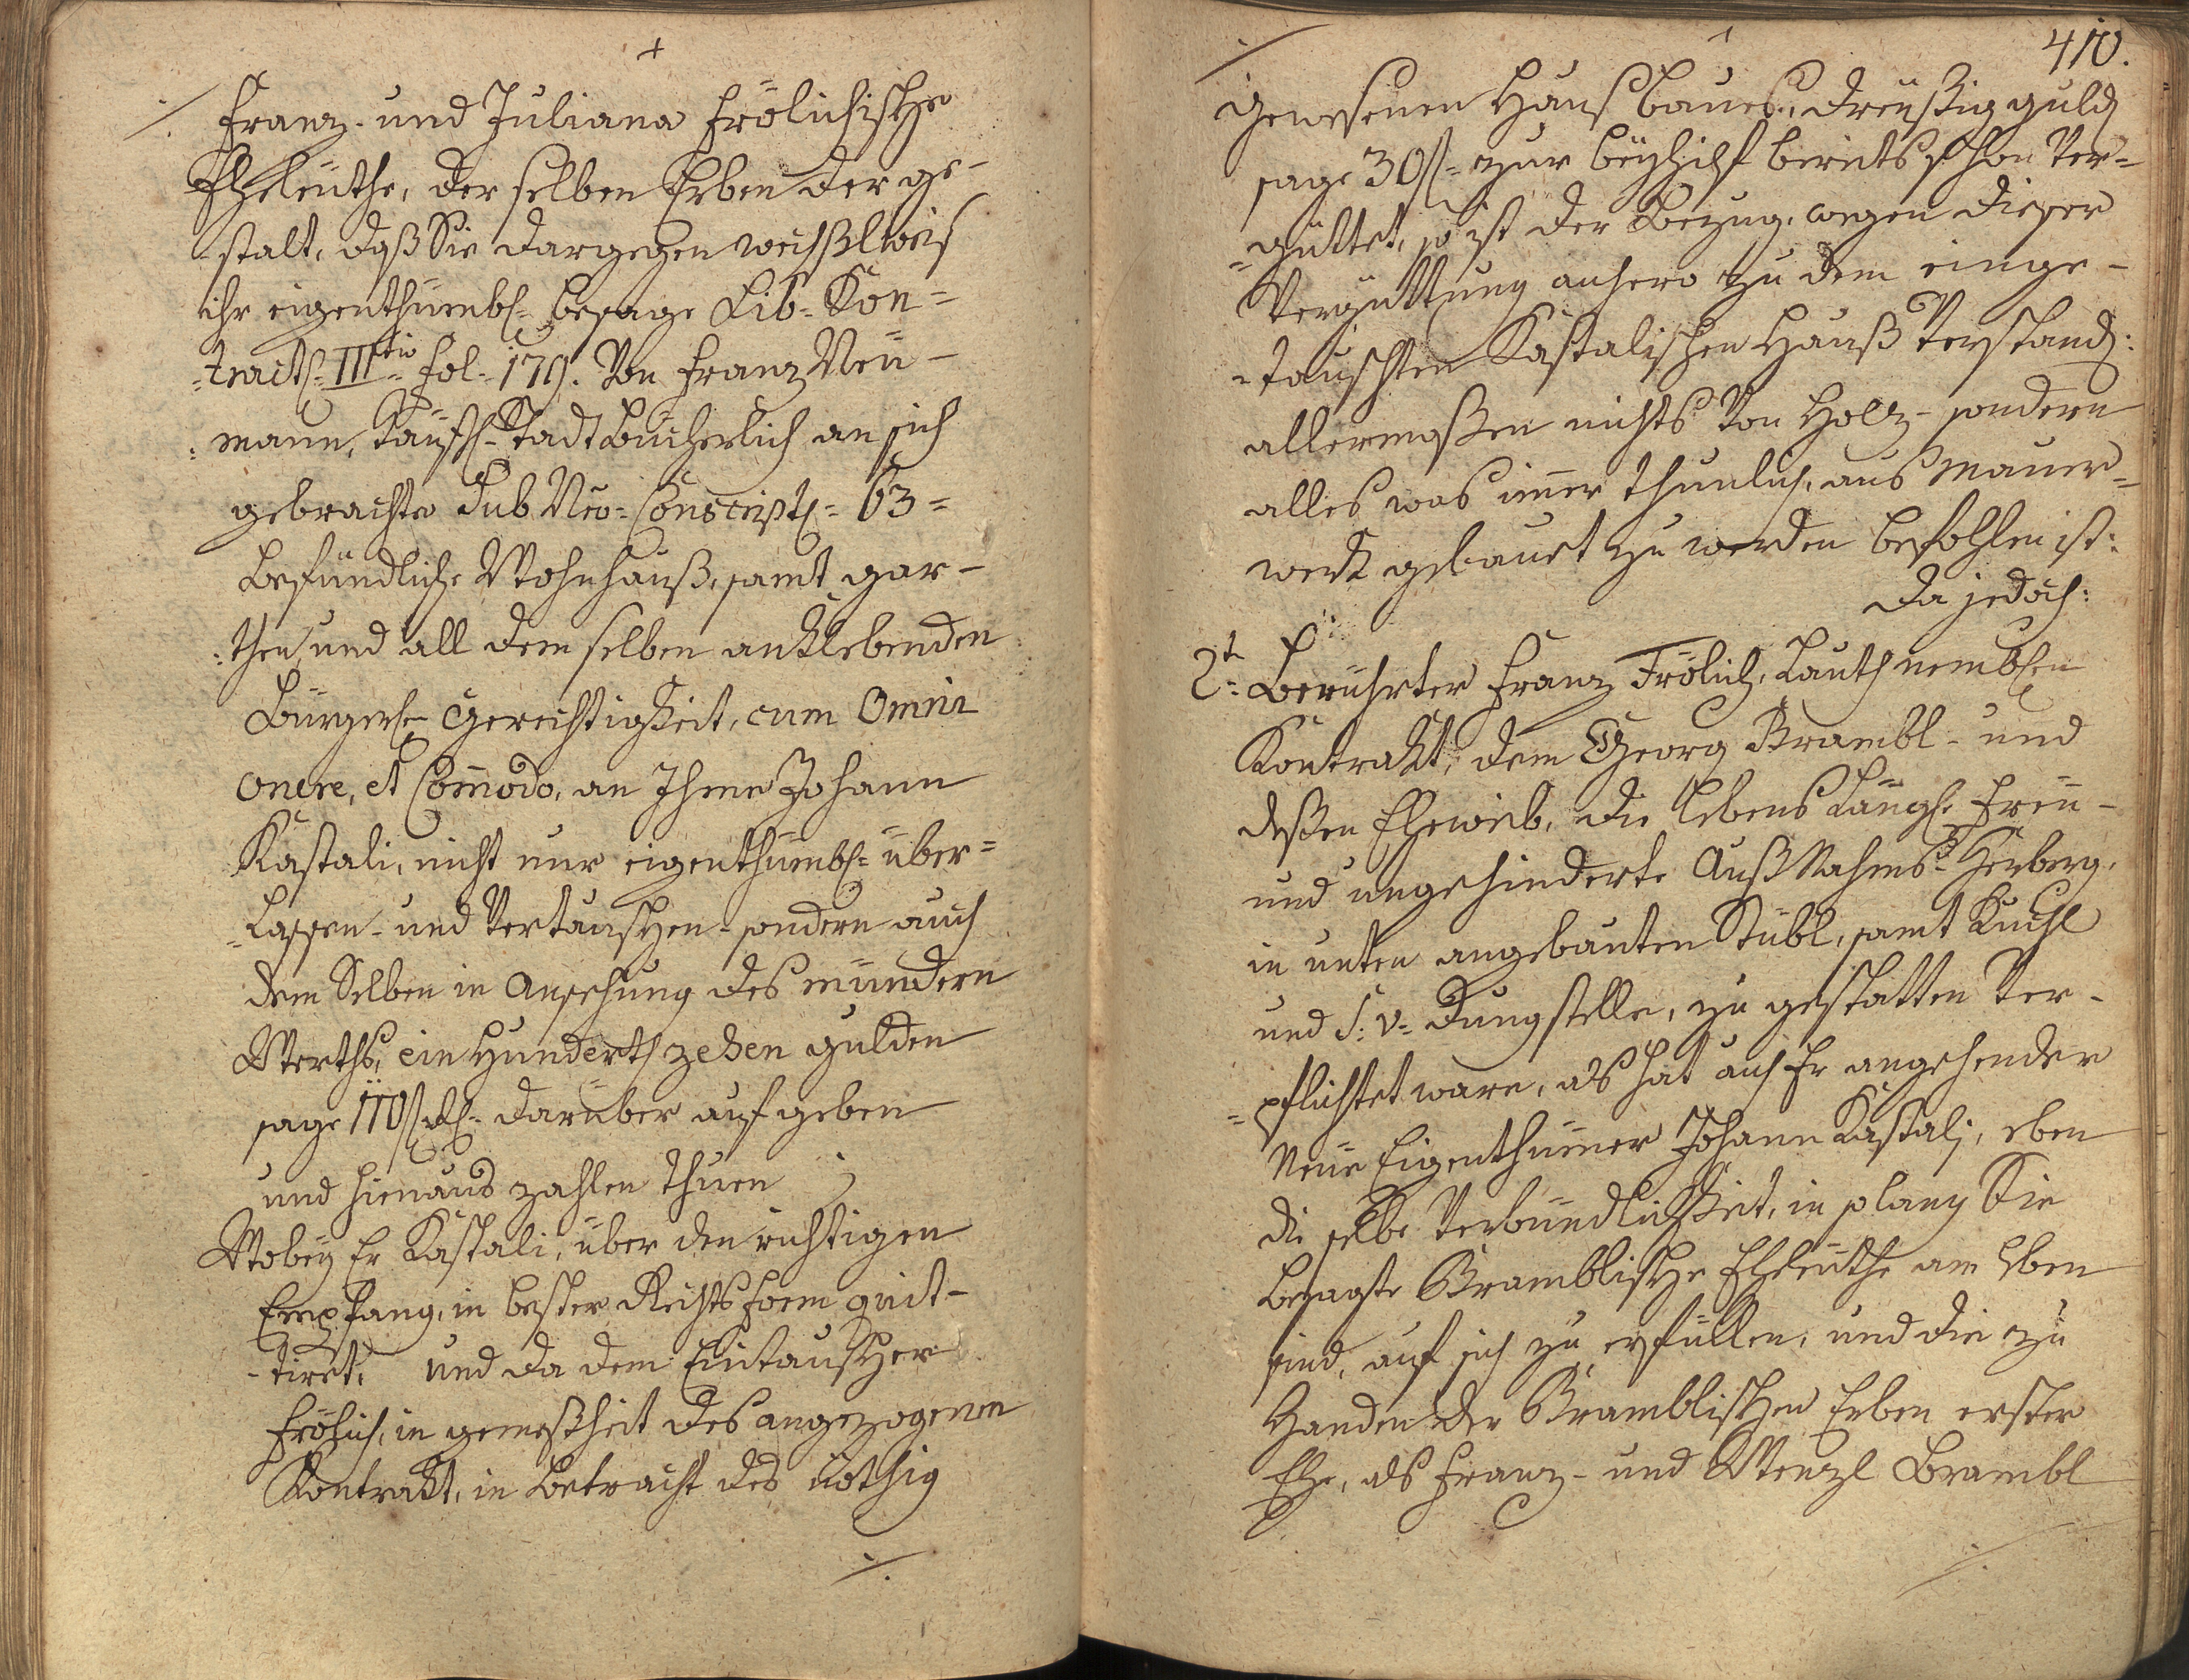 Franz- und Juliana Frölichische
Eheleüthe, der selben Erben der ge-
stalt, daß Sie dargegen wechßlweis
ihr eigenthümbl= besage Lib= Kon=
=tract= III.tio fol= 179. Von Franz Neü-
:mann, Käufl= Stadtbücherlich an sich
gebrachte Sub Nro= Conscript= 63=
befündliche Wohnhauß, samt gar-
:then, und all dem selben anklebenden
Bürgerl= Gerechtigkeit, cum Omni
onere, et Com̄odo, an Ihme Johann
Kastali, nicht nur eigenthümbl= über=
=Lassen- und Vertauschen- sondern auch
dem Selben in Ansehung des mündern
Werths, ein Hunderth zehen gulden
sage 110 f darüber auf geben
und hienaus zahlen thuen
Wobey Er Kastali, über den richtigen
Empfang, in bester Rechtsform quit-
-tiret. Und da dem Eintauscher
Frölich, in gemeßheit des angezogenen
Kontrakt, in betracht des nöthig
./.
./. 410.
gewesenen Haußbaues, dreyßig guld
sage 30 f= zur beyhilf bereits schon Ver=
=güttet, so ist der Bezug, wegen dieser
Vergüttung anhero zu dem einge-
-tauschten Kastalischen Hauß Verstand:
allermaßen nichts Von Holz- sondern
alles was im̄er thunlich, aus Mauer=
werk gebauet zu werden befohlen ist:
Da jedoch:
2t= Berührter Franz Frölich, Lauth nemblen
Kontrakt, dem Georg Brambl- und
deßen Eheweib, die lebens Längl. freü-
und ungehinderte Außnahms- Herberg,
in unten angebauten Stübl, samt Kuchl
und S: v= Dungstelle, zu gestatten Ver-
=pflichtet ware, als hat auch Er angehender
Neüe Eigenthümer Johann Kastali, eben
die selbe Verbündlichkeit, in so lang Sie
besagte Bramblische Eheleüthe am Leben
sind, auf sich zu erfüllen, und die zu
Handen der Bramblischen Erben erster
Ehe, als Franz- und Wenzl Brambl
./.